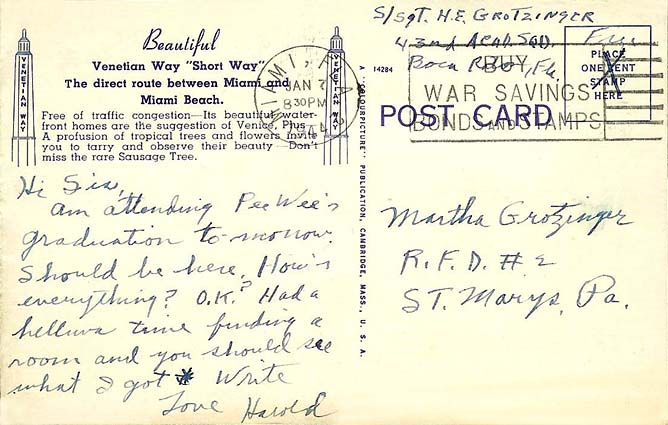 Beautiful
Venetian Way "Short Way"
The direct route between Miami and
Miami Beach.
Free of traffic congestion—Its beautiful water-
front homes are the suggestion of Venice, Plus
A profusion of tropical trees and flowers invite
you to tarry and observe their beauty—Don't
miss the rare Sausage Tree.
VENETIAN WAY
VENETIAN WAY
Hi Sis,
am attending PeeWee's
graduation to-morrow.
Should be here. How's
everything? O.K.? Had a
helluva time finding a
room and you should see
what I got Write
Love Harold
MIAMI, FLA.
JAN 7
8 30 PM
A "COLOURPICTURE" PUBLICATION, CAMBRIDGE, MASS., U. S. A.
14284
S/Sgt. H.E. Grotzinger
Boca Fla.
Free
PLACE
ONE CENT
STAMP
HERE
BUY
WAR SAVINGS
BONDS AND STAMPS
POST CARD
Martha Grotzinger
R.F.D. # 2
St. Marys, Pa.